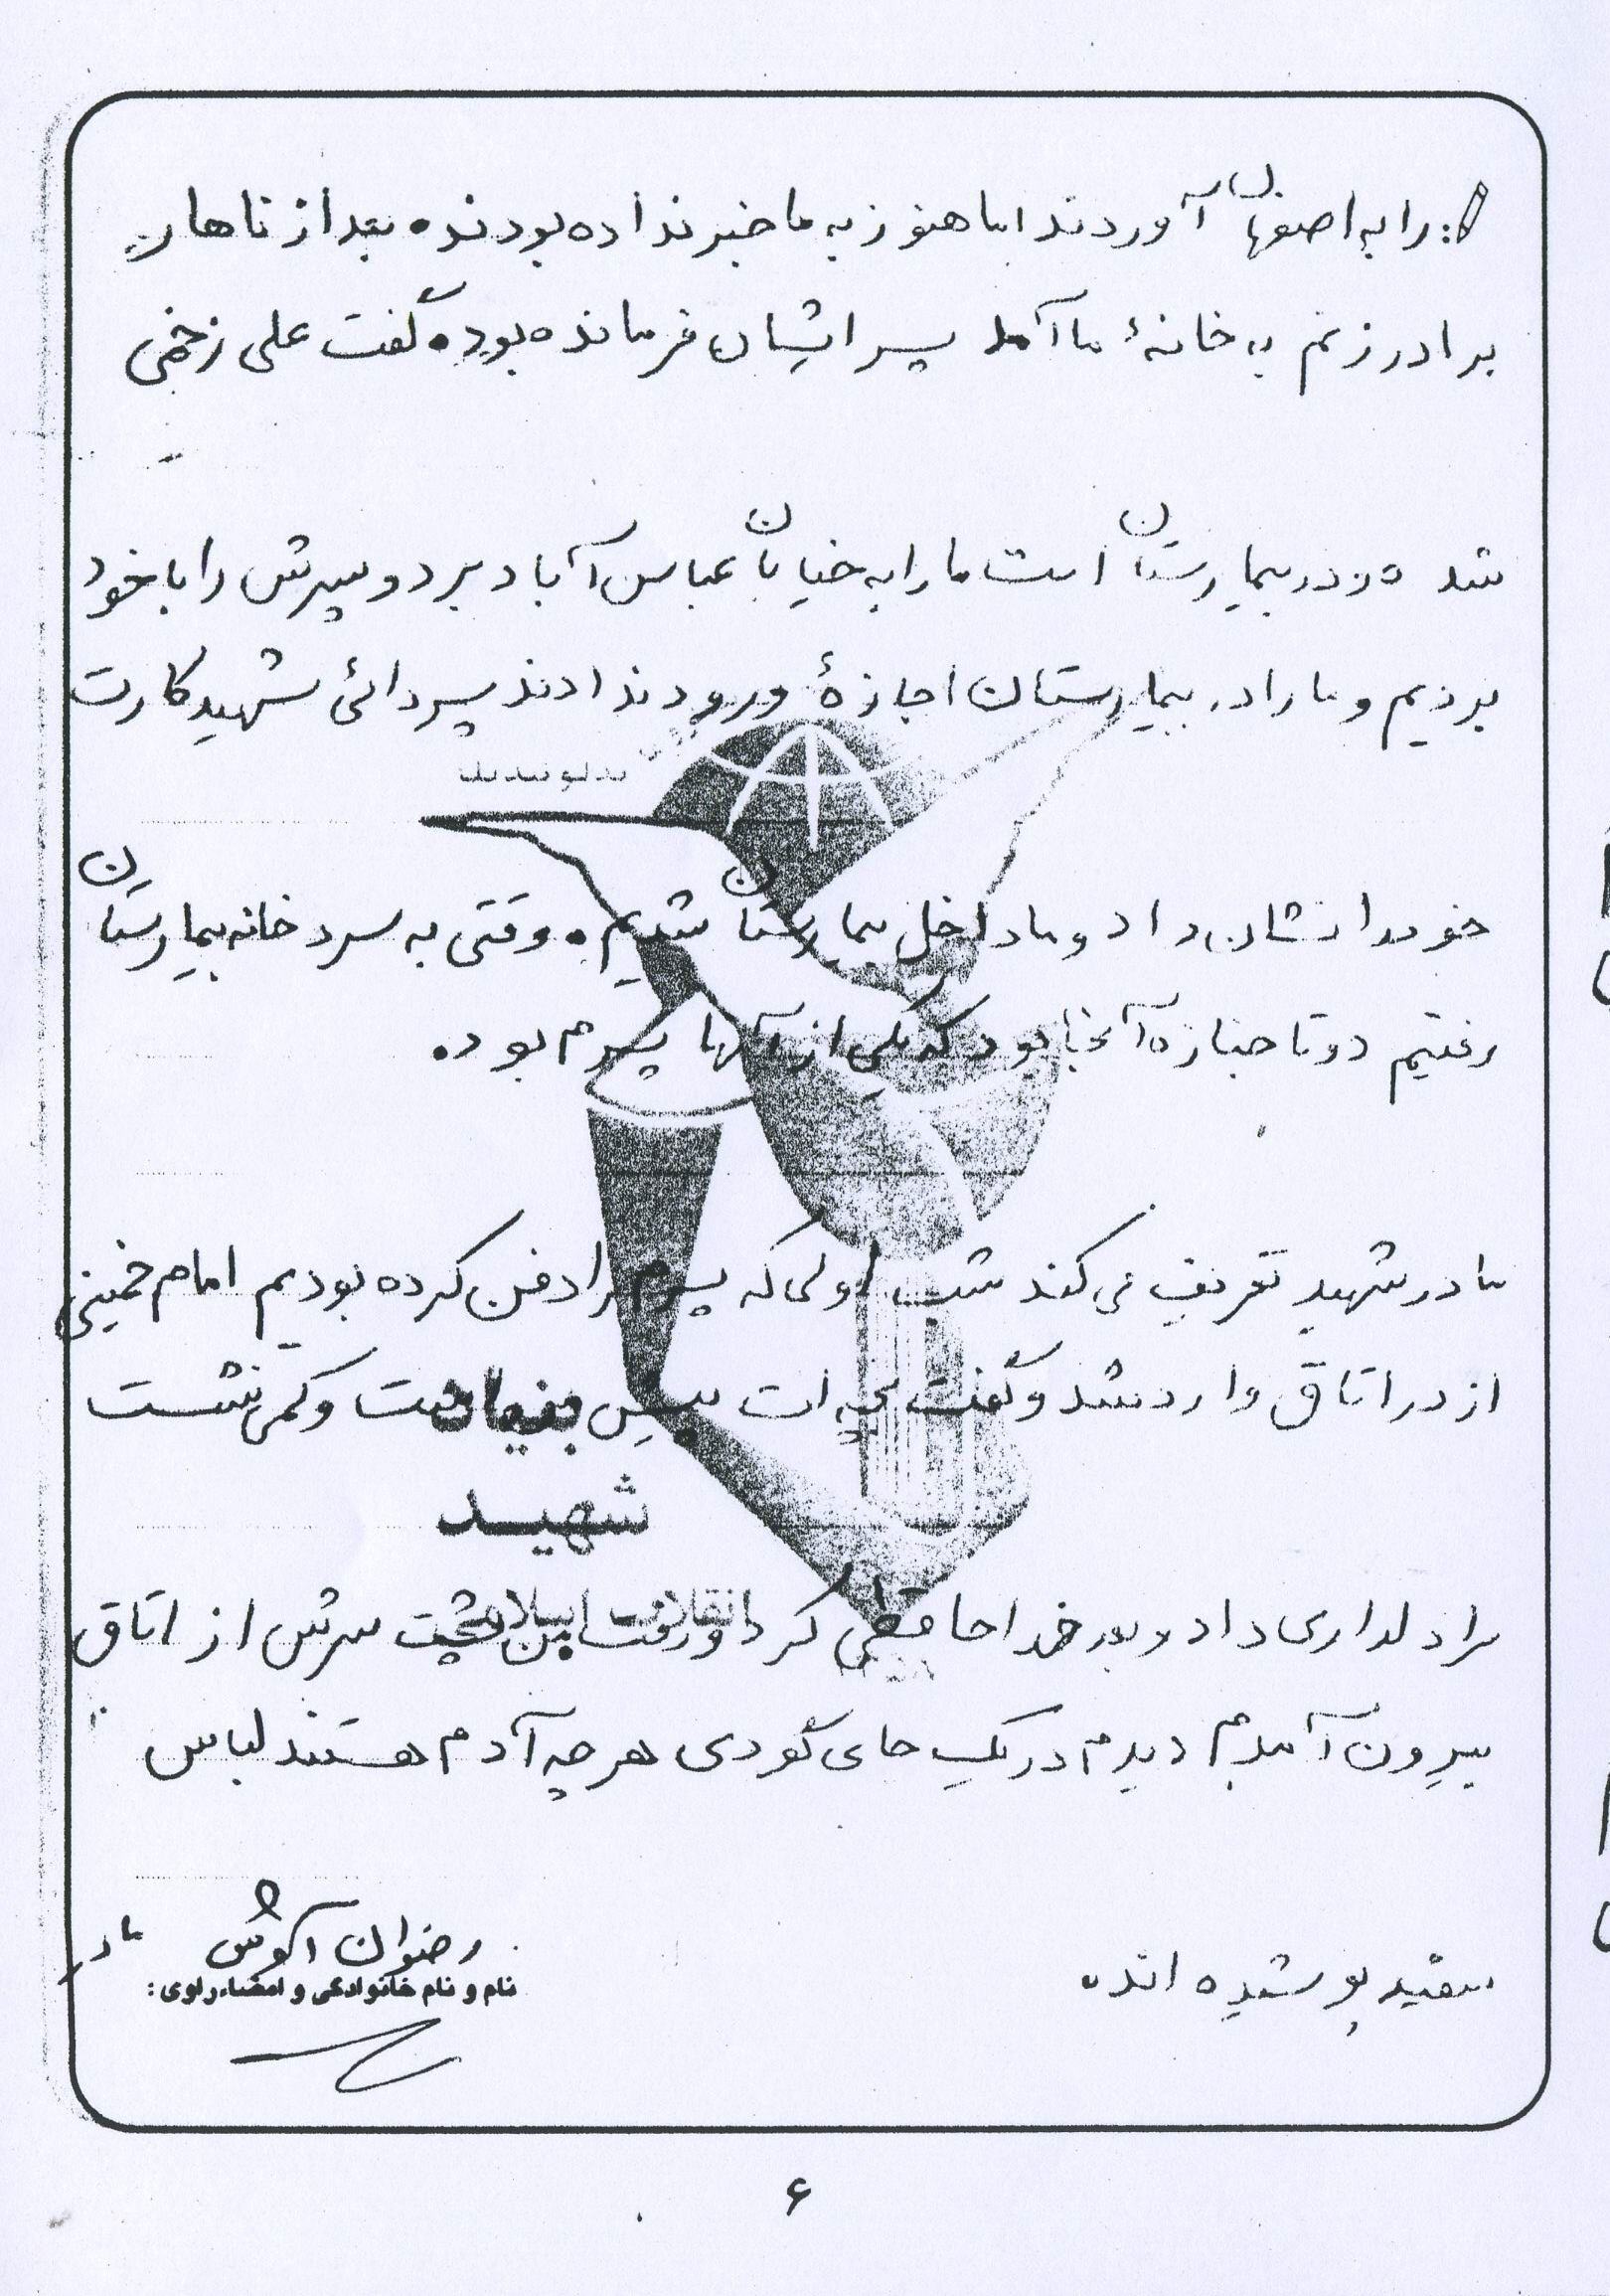 : را به اصفهان آوردند اما هنوز به ما خبر نداده بودند. بعد از ناهار
برادرزنم به خانهٔ ما آمد پسر ایشان فرمانده بود. گفت علی زخمی
شده و در بیمارستان است ما را به خیابان عباس آباد برد و پسرش را با خود
بردیم و ما را در بیمارستان اجازهٔ ورود ندادند پسردائی شهید کارت
خود را نشان داد و ما داخل بیمارستان شدیم. وقتی به سردخانه بیمارستان
رفتیم دو تا جنازه آنجا بود که یکی از آنها پسرم بود.
مادر شهید تعریف می کند شب اولی که پسرم را دفن کرده بودیم امام خمینی
از در اتاق وارد شد و گفت بچه ات پیش و کمی نشست
بنیاد
شهید
انقلاب اسلامی
مرا دلداری داد و بعد خداحافظی کرد و رفت من پشت سرش از اتاق
بیرون آمدم دیدم در یک جای گودی هر چه آدم هستند لباس
سفید پوشیده اند.
رضوان مادر
نام و نام خانوادگی و امضاء راوی:
۶